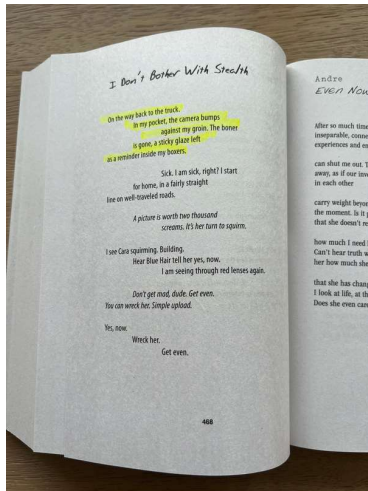 I Don't Bother With Stealth
On the way back to the truck.
In my pocket, the camera bumps
against my groin. The boner
is gone, a sticky glaze left
as a reminder inside my boxers.
Sick. I am sick, right? I start
for home, in a fairly straight
line on well-traveled roads.
A picture is worth two thousand
screams. It's her turn to squirm.
I see Cara squirming. Building.
Hear Blue Hair tell her yes, now.
I am seeing through red lenses again.
Don't get mad, dude. Get even.
You can wreck her. Simple upload.
Yes, now.
Wreck her.
Get even.
468
Andre
Even Now
After so much time
inseparable, conne
experiences and en
can shut me out. T
away, as if our inve
in each other
carry weight beyon
the moment. Is it p
that she doesn't re
how much I need h
Can't bear truth w
her how much she
that she has chang
I look at life, at th
Does she even care